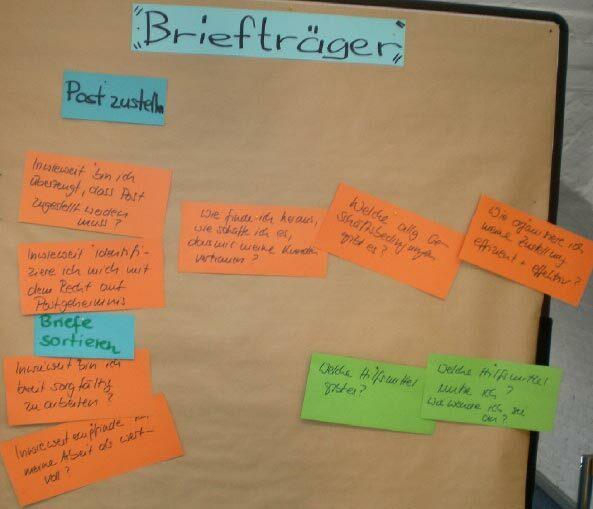 "Briefträger"
Post zustelln
Inwieweit bin ich
überzeugt, dass Post
zugestellt werden
muss?
Inwieweit identifi-
ziere ich mich mit
dem Recht auf
Postgeheimnis
Wie finde ich heraus,
wie schaffe ich es,
dass mir meine Kunden
vertrauen?
Welche allg Ge-
schäftsbedingungen
gibt es?
Wie organisiere ich
meine Zustellung
effizient + effektiv?
Briefe
sortieren
Inwieweit bin ich
bereit sorgfältig
zu arbeiten?
Inwieweit empfinde
meine Arbeit als wert-
voll?
Welche Hilfsmittel
gibt es?
Welche Hilfsmittel
nutze ich?
Wie wende ich sie
an?